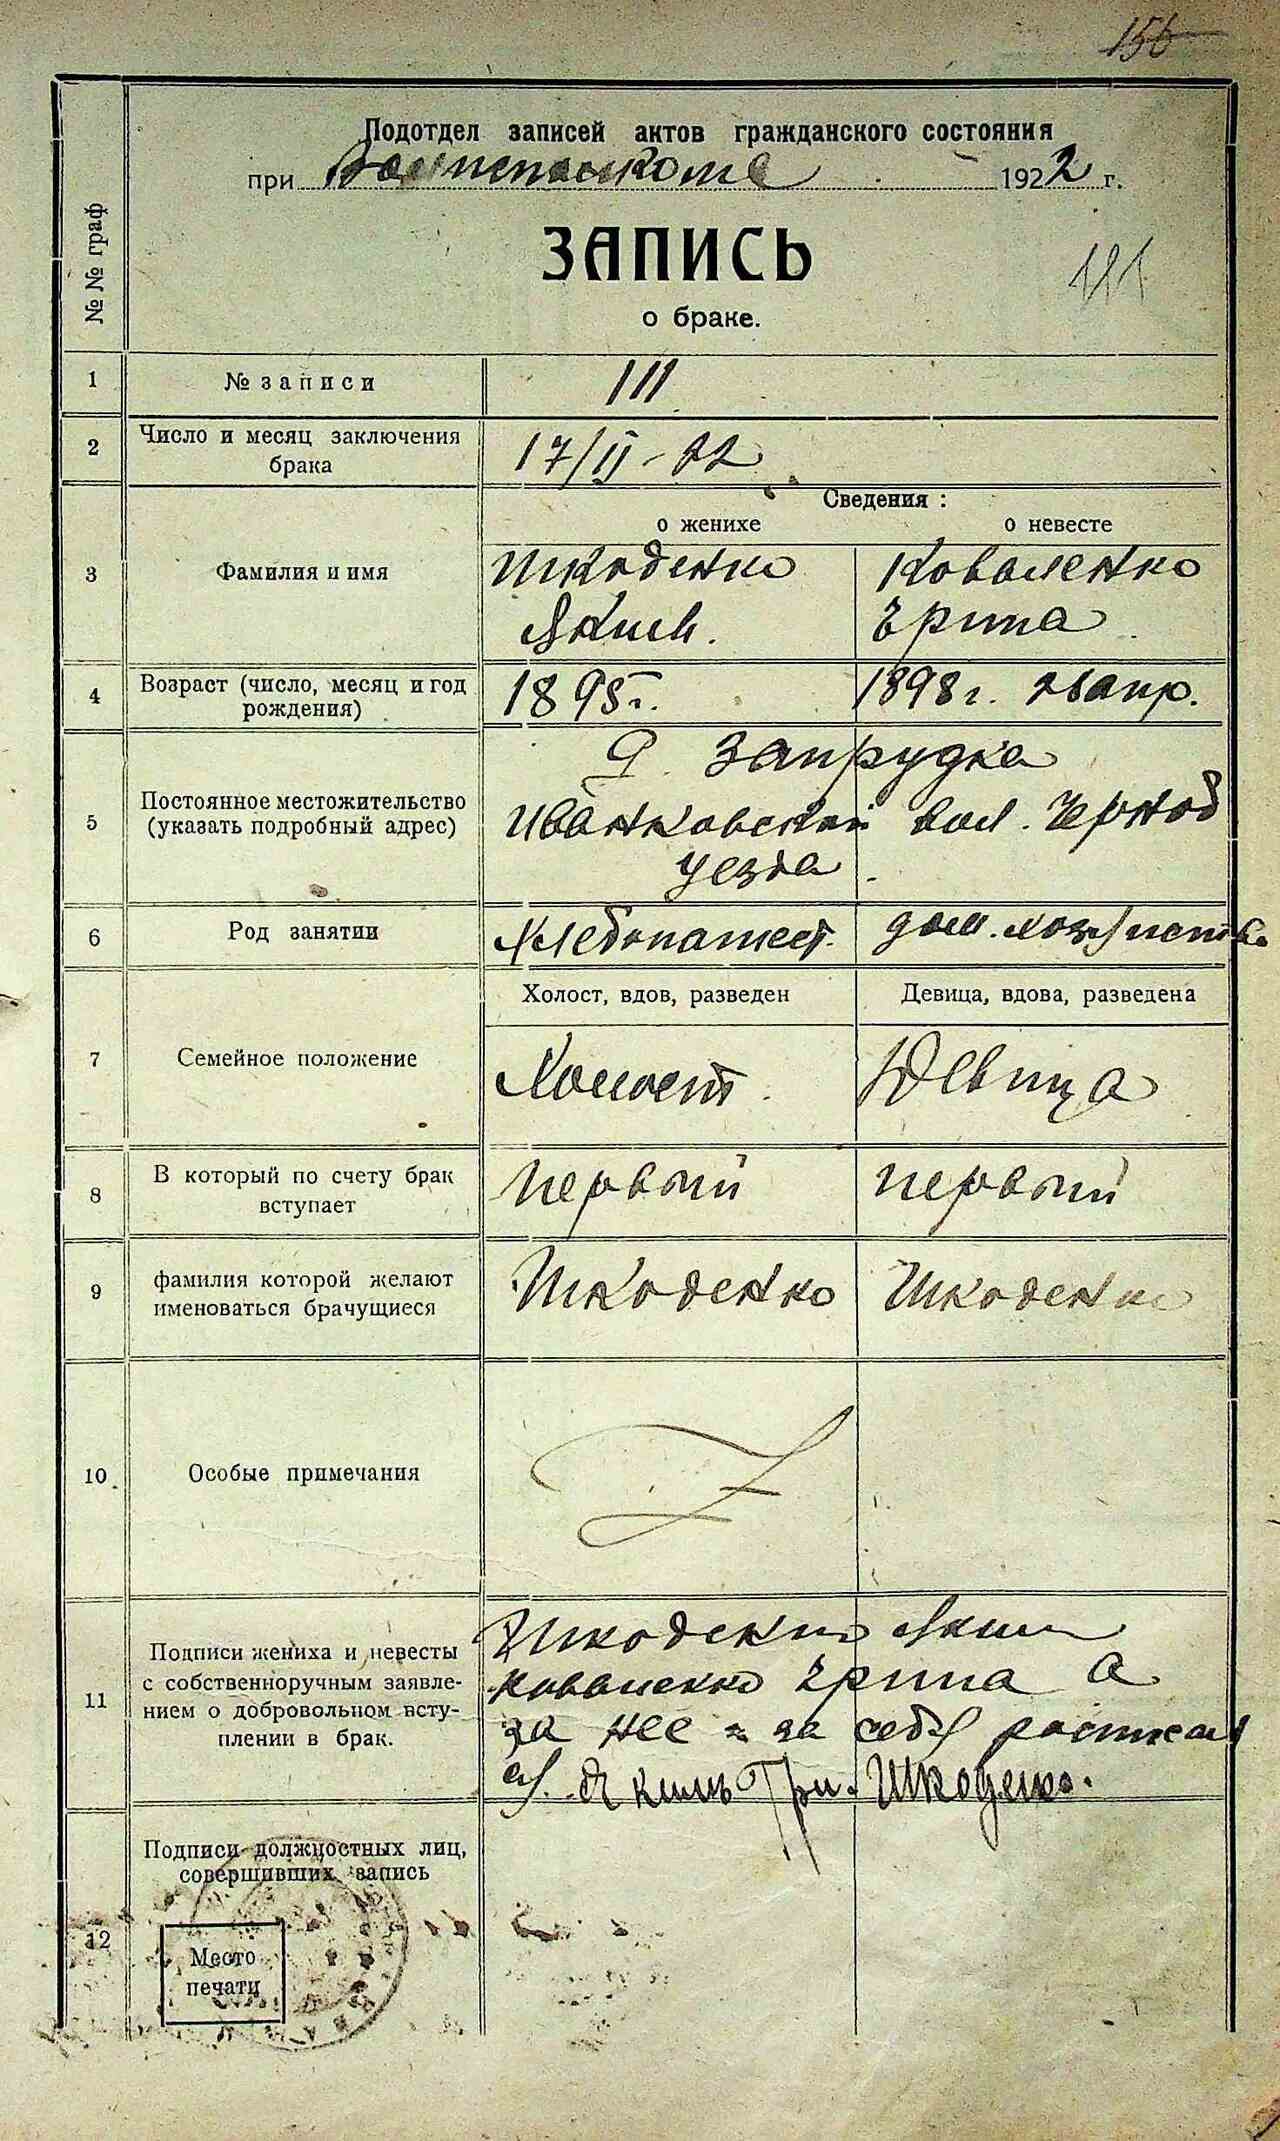 156
Подотдел записей актов гражданского состояния
при Волисполкоме 1922 г.
ЗАПИСЬ
о браке.
№ № граф
1 № записи 111
2 Число и месяц заключения брака 17/II-22
Сведения :
о женихе о невесте
3 Фамилия и имя
Шкоденко Коваленко
Яким. Ірина
4 Возраст (число, месяц и год рождения) 1895г. 1898г. апр.
5 Постоянное местожительство (указать подробный адрес)
Запрудка
Иванковской вол. Черноб
уезда
6 Род занятии Хлебопашест. дом. хозяйство
Холост, вдов, разведен Девица, вдова, разведена
7 Семейное положение Холост. Девица
8 В который по счету брак вступает первый первый
9 фамилия которой желают именоваться брачущиеся Шкоденко Шкоденко
10 Особые примечания
11 Подписи жениха и невесты с собственноручным заявлением о добровольном вступлении в брак.
Шкоденко Яким
Коваленко Ірина а
за нее и за себя росписал
ся. Якимъ Гри. Шкоденко.
12 Подписи должностных лиц, совершивших запись
Место
печати